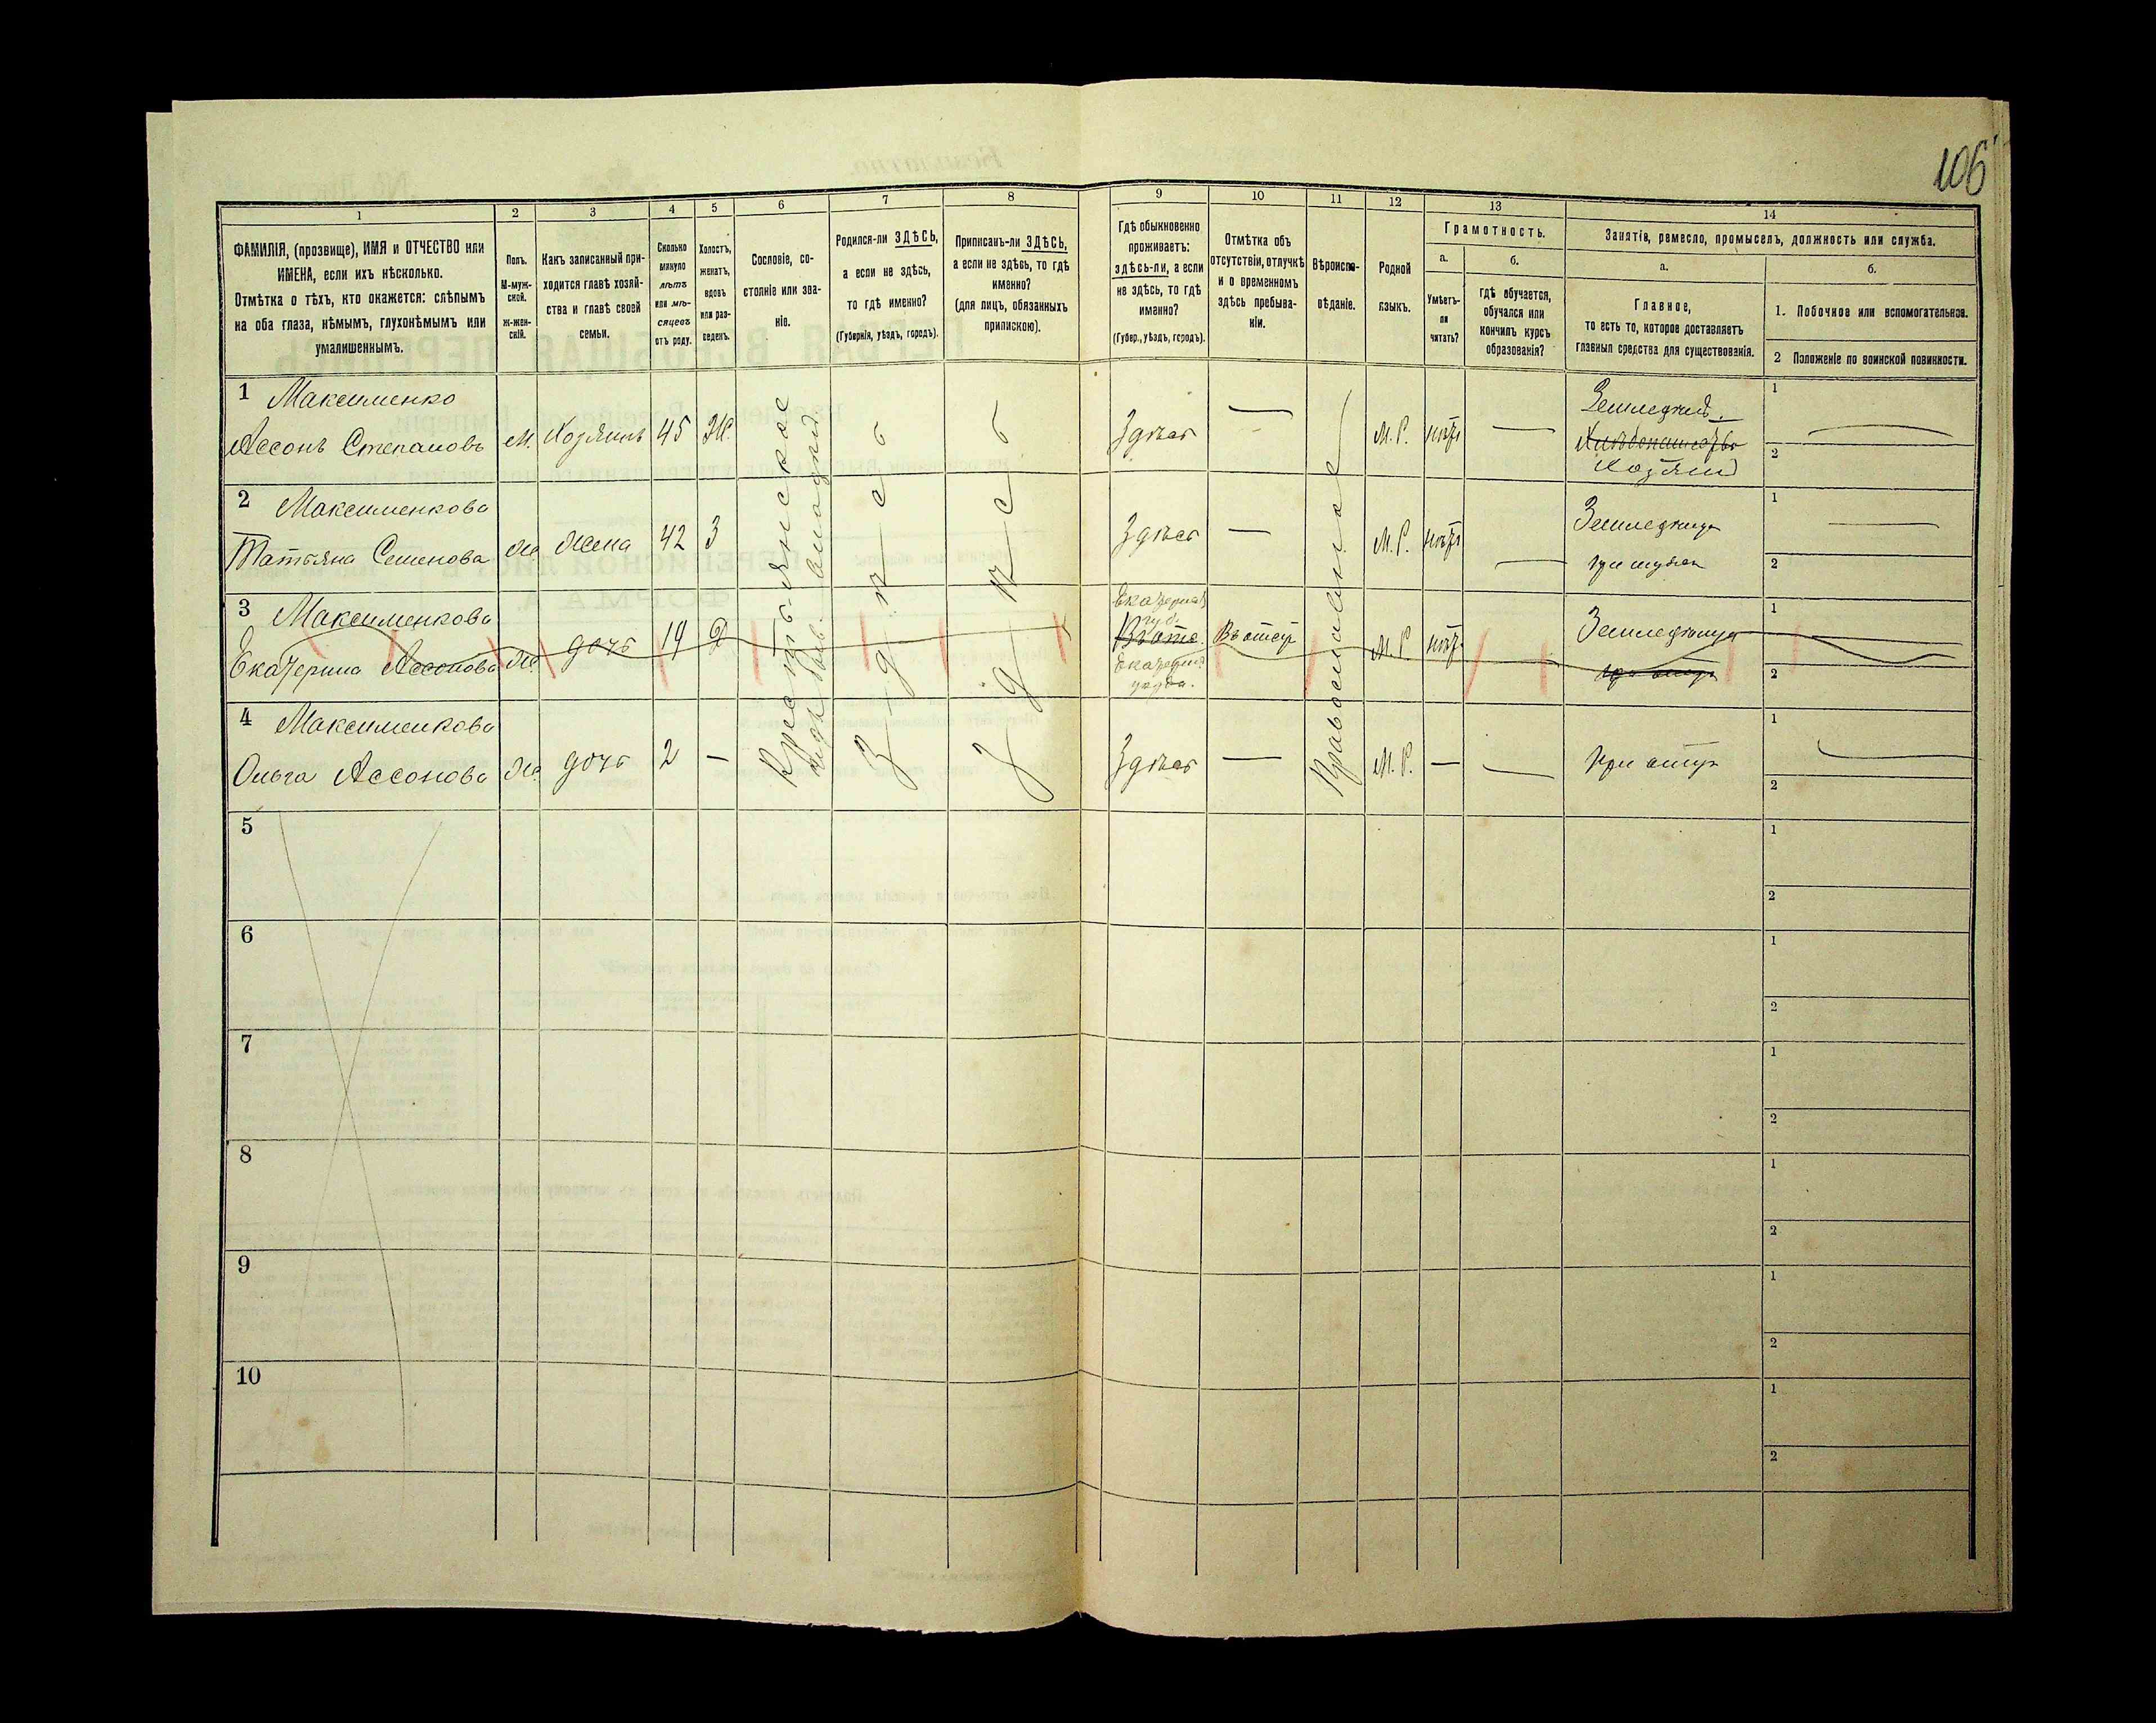 106
1
2
3
4
5
6
7
8
9
10
11
12
13
14
ФАМИЛІЯ, (прозвище), ИМЯ и ОТЧЕСТВО или
ИМЕНА, если ихъ нѣсколько.
Отмѣтка о тѣхъ, кто окажется: слѣпымъ
на оба глаза, нѣмымъ, глухонѣмымъ или
умалишеннымъ.
Полъ.
М-муж-
ской.
ж-жен-
скій.
Какъ записанный при-
ходится главѣ хозяй-
ства и главѣ своей
семьи.
Сколько
минуло
лѣтъ
или мѣ-
сяцевъ
отъ роду.
Холостъ,
женатъ,
вдовъ
или раз-
веденъ.
Сословіе, со-
стояніе или зва-
ніе.
Родился-ли ЗДѢСЬ,
а если не здѣсь,
то гдѣ именно?
(Губернія, уѣздъ, городъ).
Приписанъ-ли ЗДѢСЬ,
а если не здѣсь, то гдѣ
именно?
(для лицъ, обязанныхъ
припискою).
Гдѣ обыкновенно
проживаетъ:
здѣсь-ли, а если
не здѣсь, то гдѣ
именно?
(Губер., уѣздъ, городъ).
Отмѣтка объ
отсутствіи, отлучкѣ
и о временномъ
здѣсь пребыва-
ніи.
Вѣроиспо-
вѣданіе.
Родной
языкъ.
Грамотность.
а.
Умѣетъ-
ли
читать?
б.
гдѣ обучается,
обучался или
кончилъ курсъ
образованія?
Занятіе, ремесло, промыселъ, должность или служба.
а.
Главное,
то есть то, которое доставляетъ
главныя средства для существованія.
б.
1. Побочное или вспомогательное.
2 Положеніе по воинской повинности.
1 Максименко
Ассонъ Степановъ
м.
Хозяинъ
45
Ж.
Крестьянское
Здѣсь
Здѣсь
Здѣсь
—
Православное
М. Р.
нѣтъ
—
Земледѣліе.
Хозяинъ
1
2
2 Максименкова
Татьяна Семенова
ж
жена
42
З
Здѣсь
—
М. Р.
нѣтъ
—
Земледѣлица
при мужѣ
1
2
3 Максименкова
Екатерина Ассонова
ж.
дочь
19
Екатерин
губ.
Въ отсут
М. Р.
нѣтъ
1
2
4 Максименкова
Ольга Ассонова
ж.
дочь
2
—
Здѣсь
—
М. Р.
—
—
При отцѣ
1
2
5
1
2
6
1
2
7
1
2
8
1
2
9
1
2
10
1
2